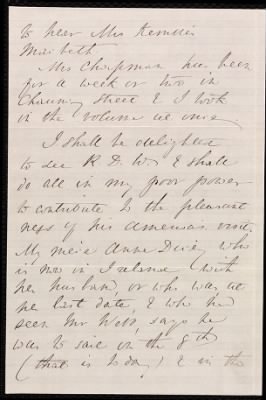 to hear Mrs Kemble's
Macbeth.
Mrs Chapman has been
for a week or two in
Chauncy Street & I took
in the volume at once
I shall be delighted
to see R. D. W. & shall
do all in my poor power
to contribute to the pleasant
ness of his American visit.
My niece Anne Dixie, who
is now in Ireland (with
her husband, or who was at
the last date, & who has
seen Mr Webb, says he
was to sail on the 8th
(that is to day) & in the